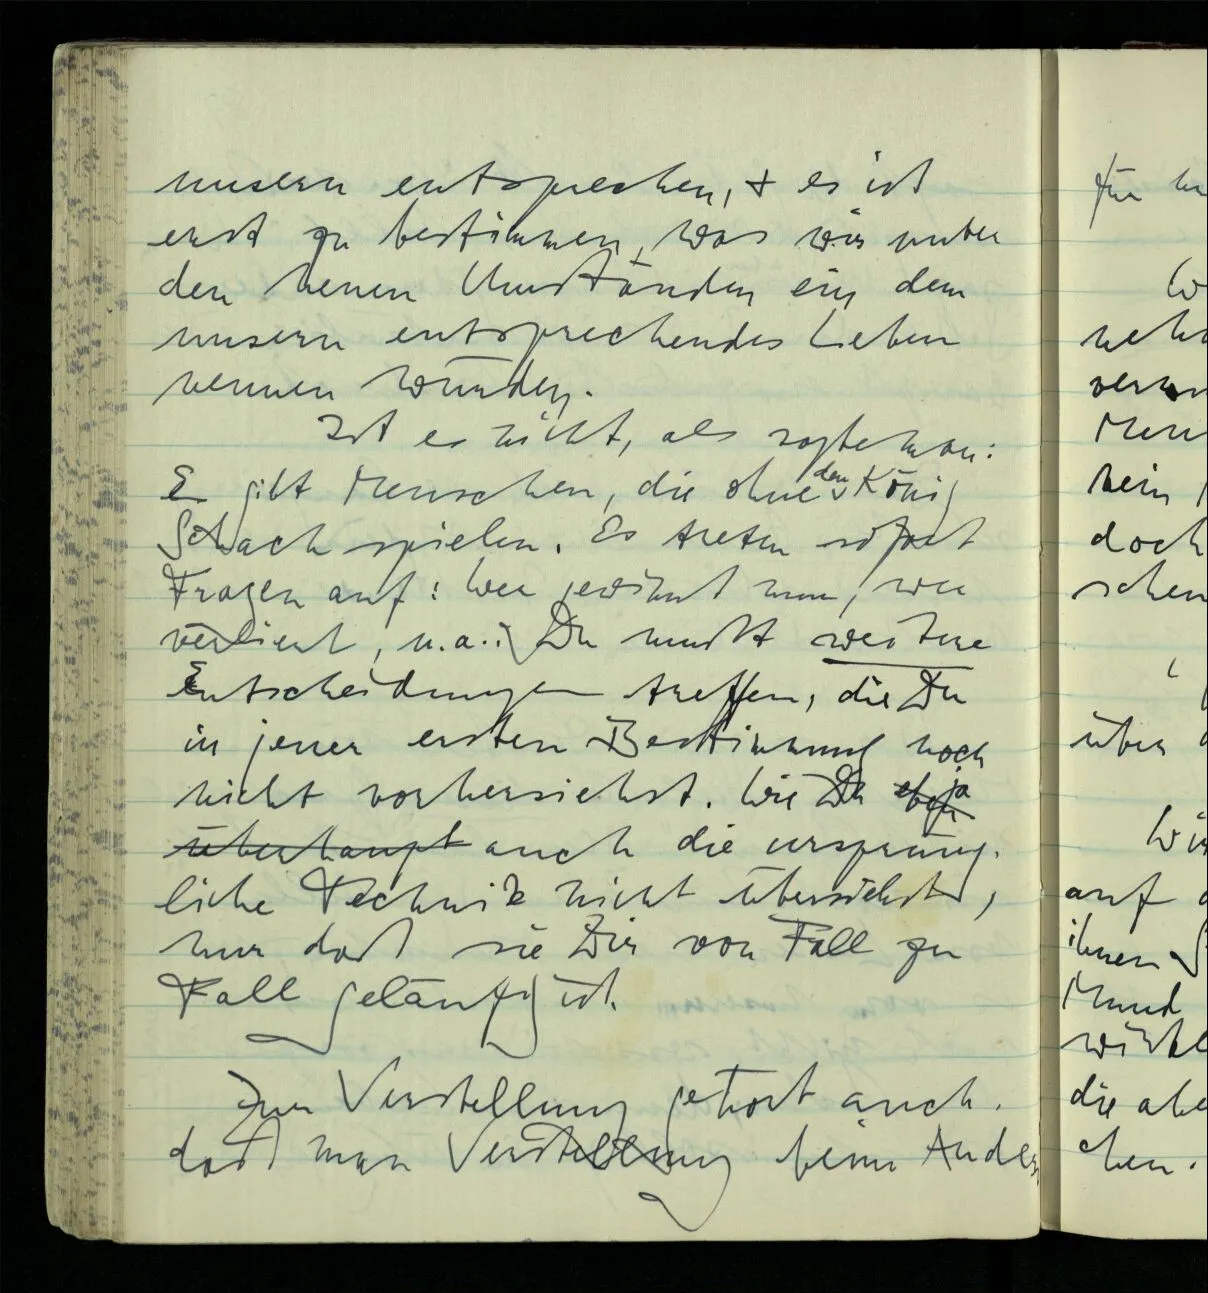 unsern entsprechen, + es ist
erst zu bestimmen, was wir unter
den neuen Umständen ein dem
unsern entsprechendes Leben
nennen würden.
Ist es nicht, als sagte man:
Es gibt Menschen, die ohne den König
Schach spielen. Es treten sofort
Fragen auf: wer gewinnt nun, wer
verliert, u.a.. Du mußt weitere
Entscheidungen treffen, die Du
in jener ersten Bestimmung noch
nicht vorhersiehst. Wie Du eben ja
überhaupt auch die ursprüng-
liche Technik nicht übersiehst,
nur daß sie Dir von Fall zu
Fall geläufig ist.
Zur Verstellung gehört auch,
daß man Verstellung beim Andern
für
neh
doch
schen
über
auf
ihnen
Mund
die abe
chen.